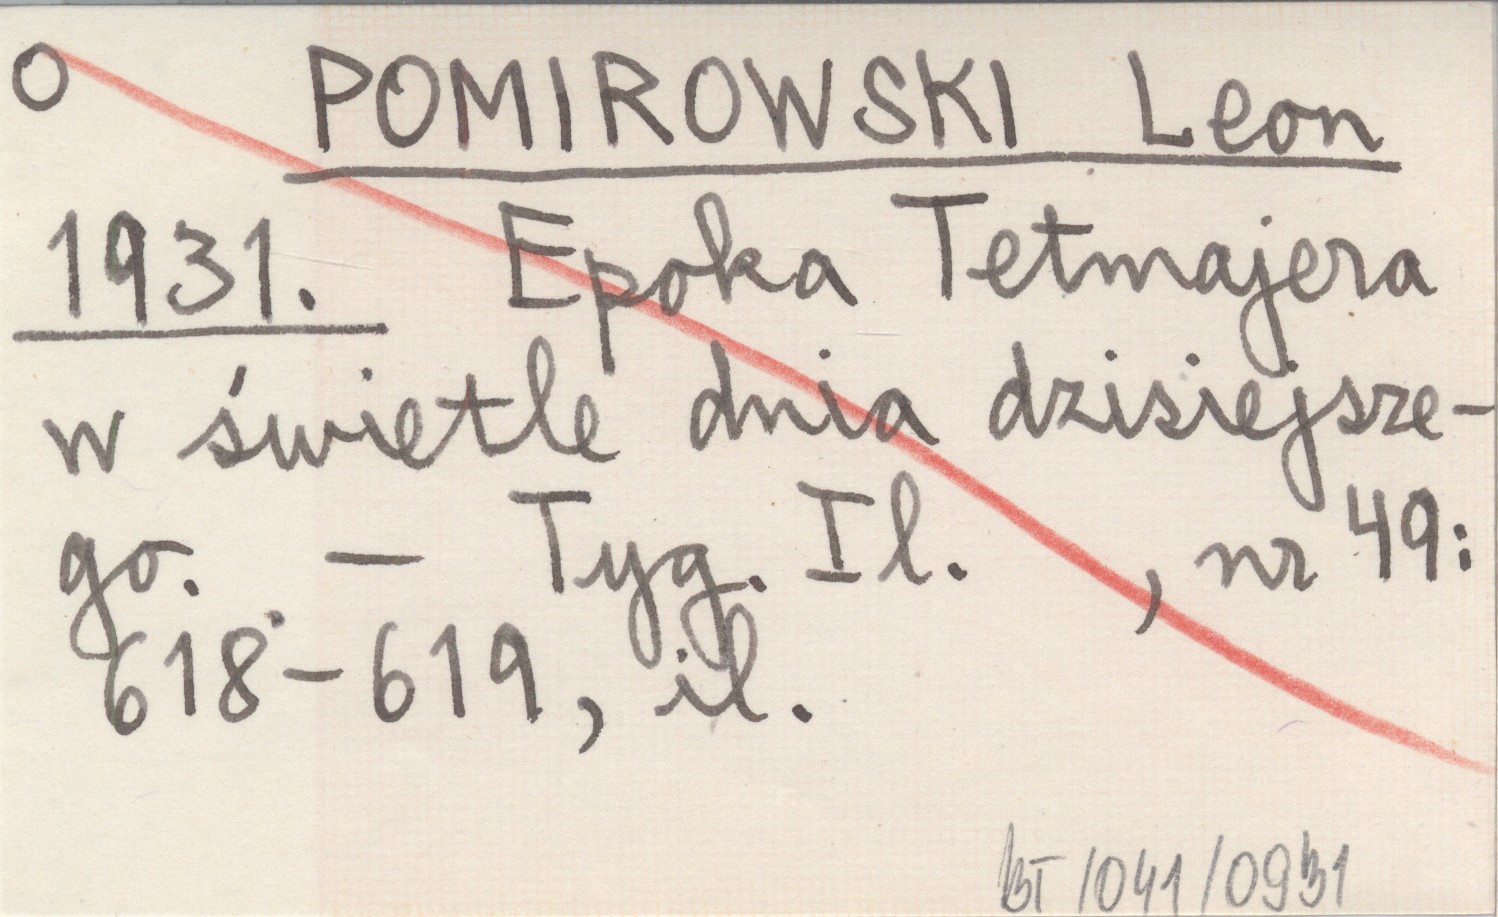 O POMIROWSKI Leon
1931. Epoka Tetmajera
w świetle dnia dzisiejsze-
go. — Tyg. Il. , nr 49:
618-619, il.
BT/041/0931